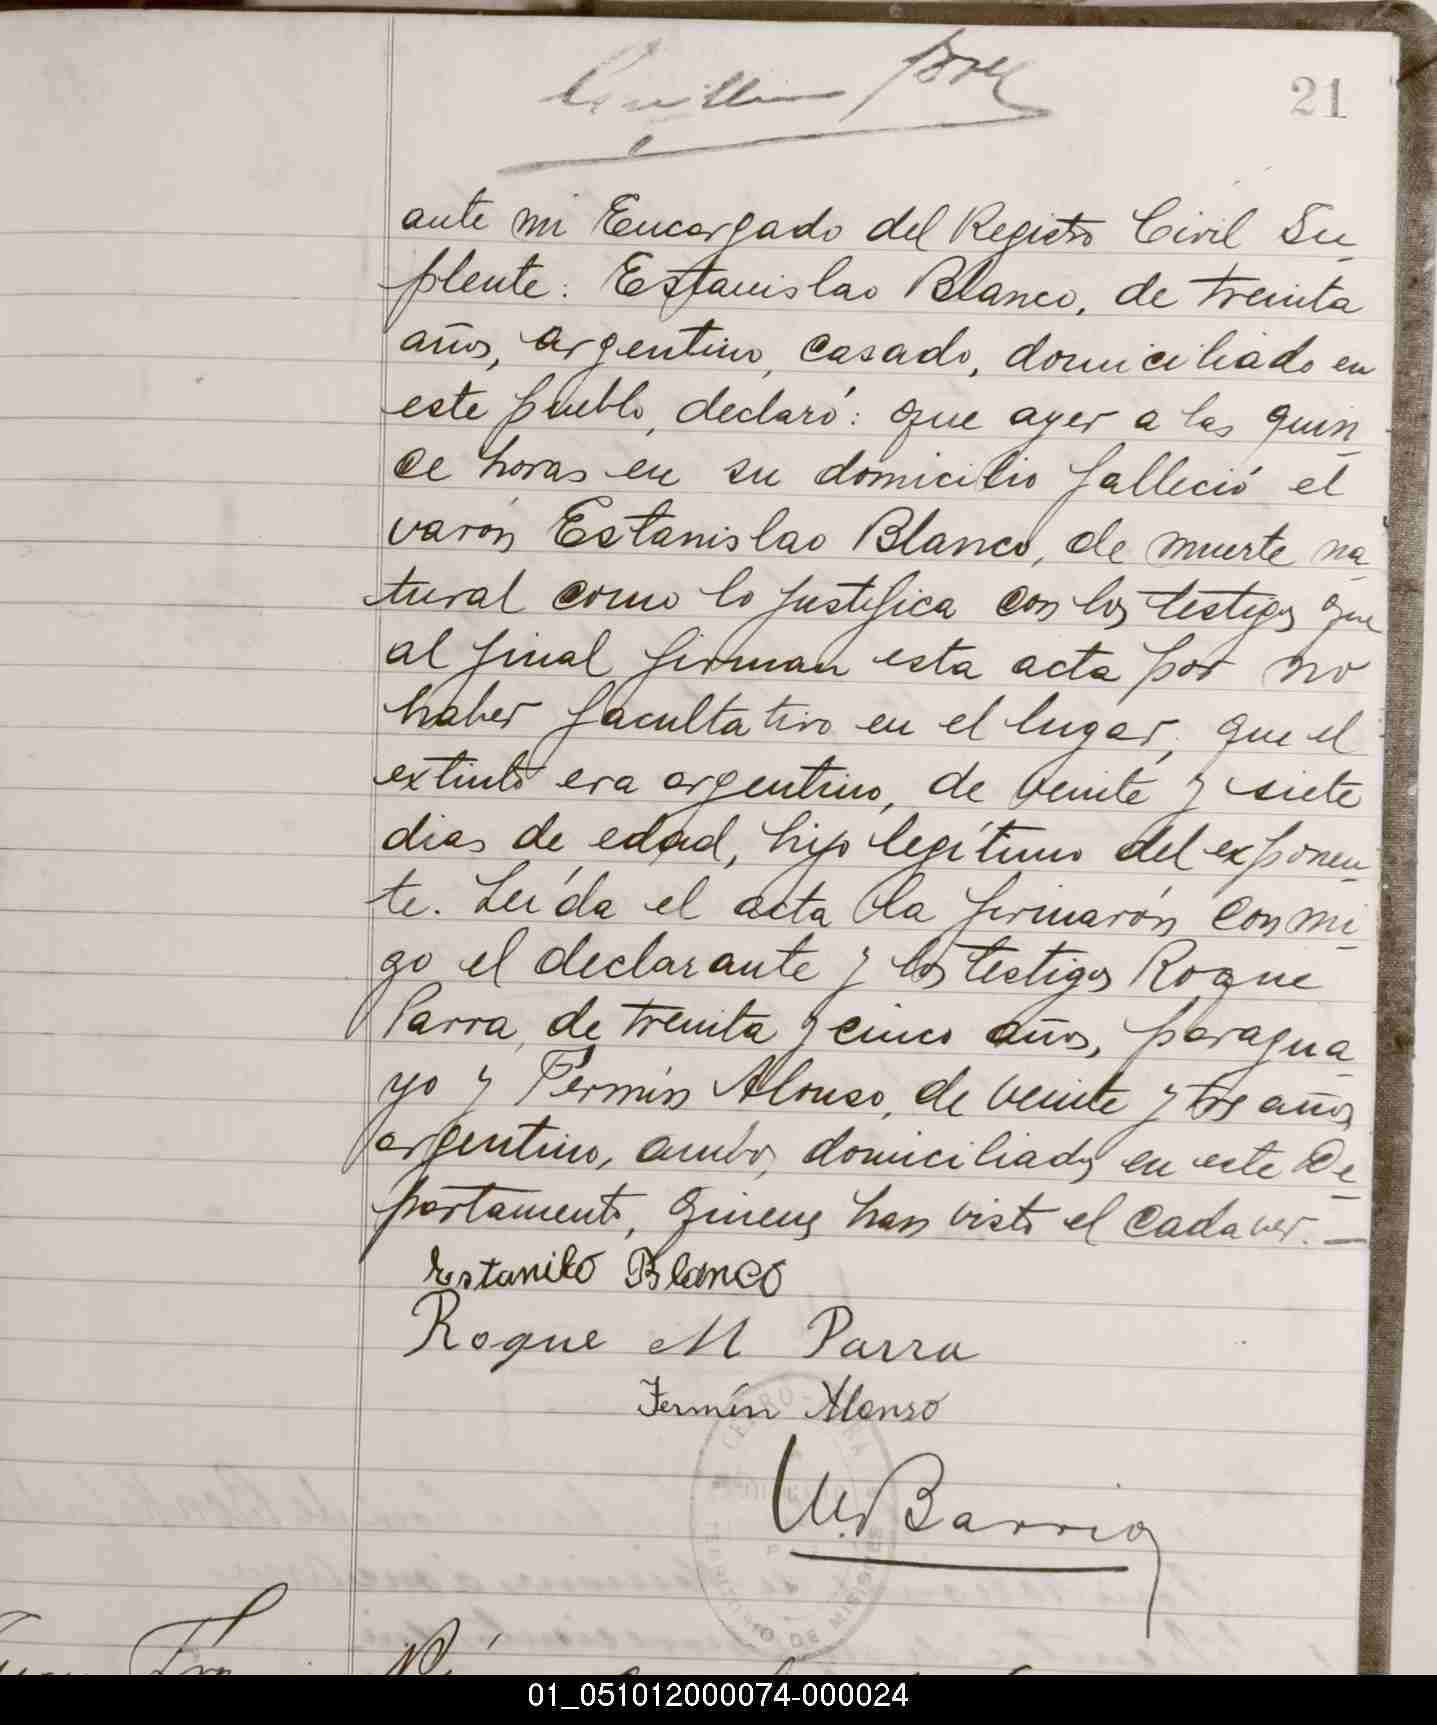 21
ante mi Encargado del Registro Civil Su
plente: Estanislao Blanco, de treinta
años, argentino, casado, domiciliado en
este pueblo, declaró: que ayer a las quin
ce horas en su domicilio falleció el
varón Estanislao Blanco, de muerte na
tural como lo justifica con los testigos que
al final firman esta acta por no
haber facultativo en el lugar, que el
extinto era argentino, de veinte y siete
dias de edad, hijo legítimo del exponen
te. Leída el acta la firmarón conmi
go el declarante y los testigos Roque
Parra, de treinta y cinco años, paragua
yo y Fermín Alonso, de veinte y tres años
argentino, ambos domiciliados en este De
partamento, quienes han visto el cadaver. —
Estanilo Blanco
Roque M Parra
Fermín Alonso
Barrio
DE MISIONES
01_051012000074-000024